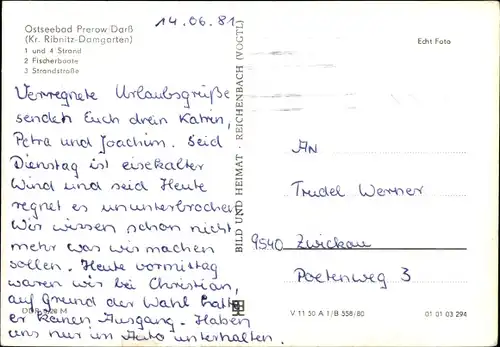 Ostseebad Prerow/Darß
(Kr. Ribnitz-Damgarten)
1 und 4 Strand
2 Fischerboote
3 Strandstraße
14.06.81
Echt Foto
Verregnete Urlaubsgrüße
senden Euch drein Katrin,
Petra und Joachim. Seid
Dienstag ist eisekalter
Wind und seid Heute
regnet es ununterbrochen
Wir wissen schon nicht
mehr was wir machen
sollen. Heute vormittag
waren wir bei Christian,
auf Grund der Wahl hatte
er keinen Ausgang. Haben
uns nur im Auto unterhalten.
BILD UND HEIMAT · REICHENBACH (VOGTL)
AN
Trudel Werner
9540 Zwickau
Poetenweg 3
V 11 50 A 1/B 558/80
01 01 03 294